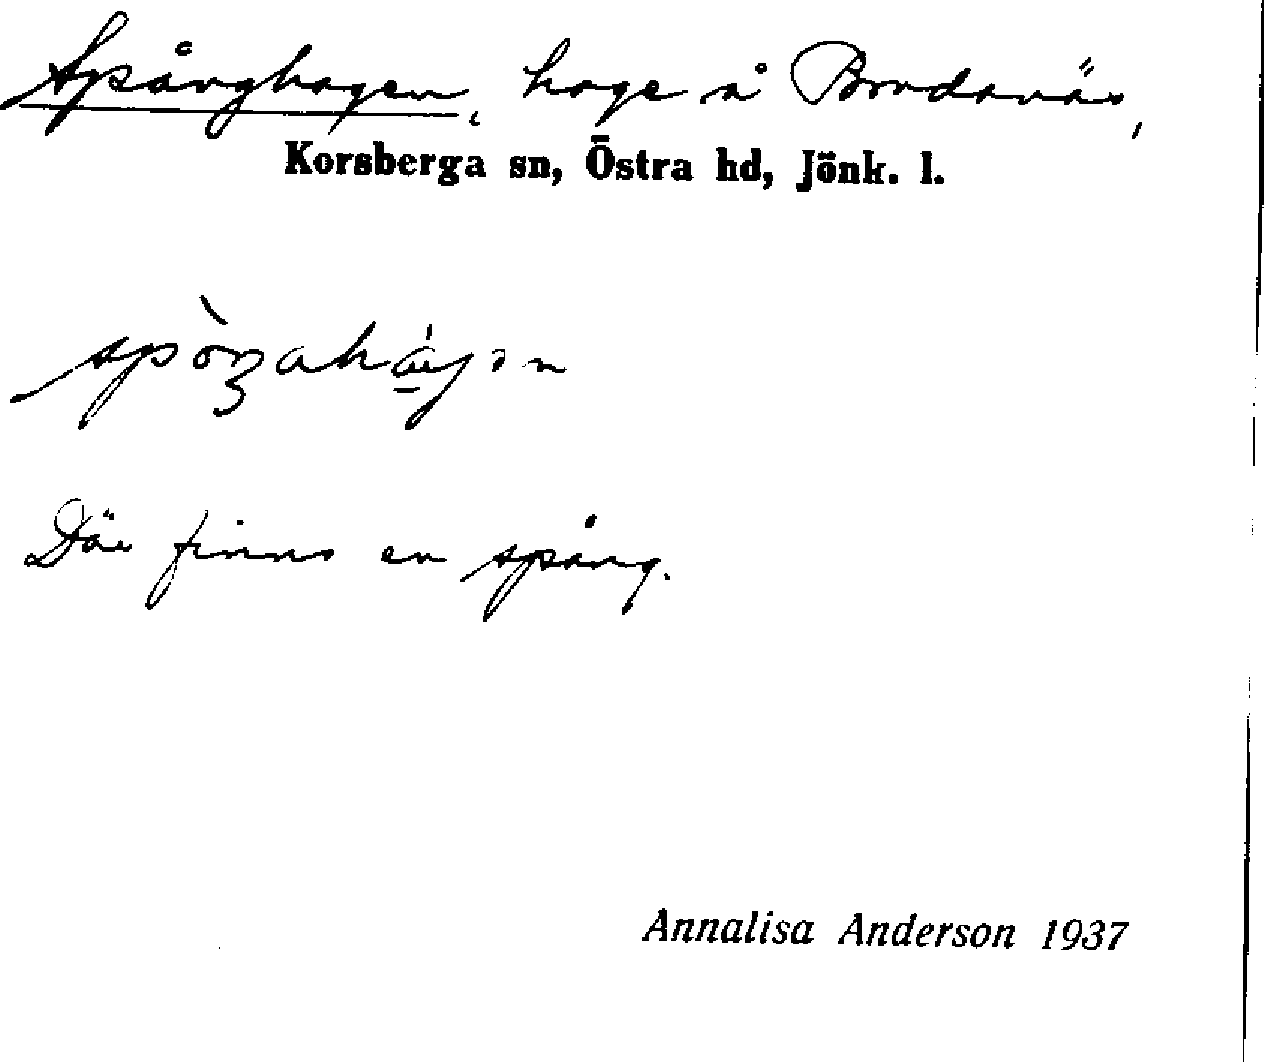 Spånghagen, hage å Bordanäs,
Korsberga sn, Östra hd, Jönk. l.
Där finns en spång.
Annalisa Anderson 1937